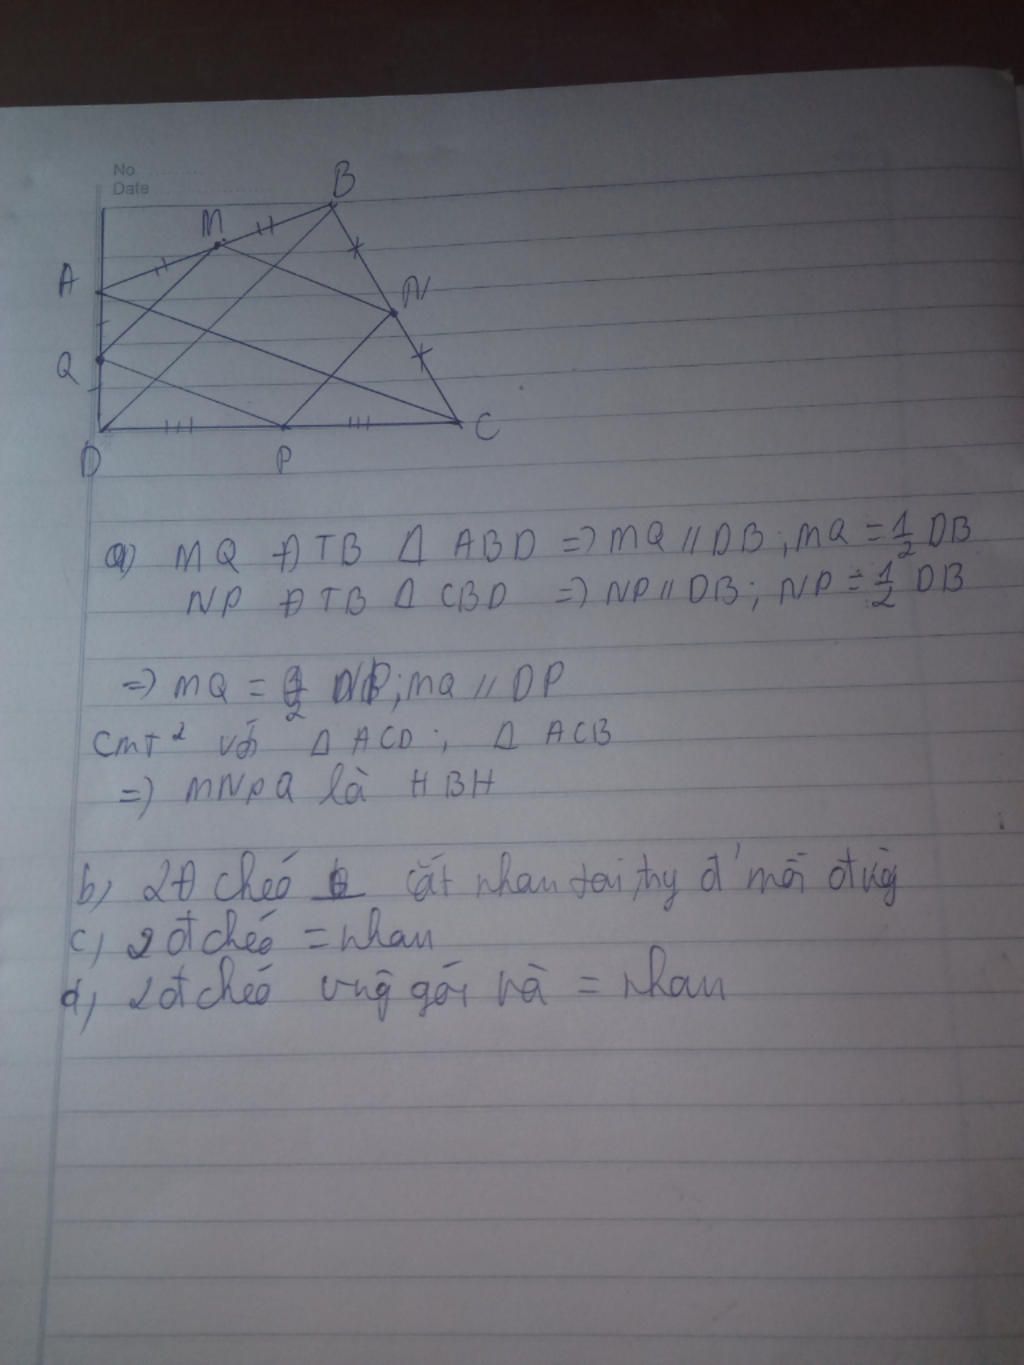 No
Date
B
M
A
N
Q
C
D
P
a) MQ ĐTB Δ ABD => MQ // DB ; MQ = 1/2 DB
NP ĐTB Δ CBD => NP // DB ; NP = 1/2 DB
=> MQ = NP ; MQ // DP
Cmt² với Δ ACD ; Δ ACB
=> MNPQ là HBH
b) 2 đ chéo cắt nhau tại đ' mỗi đường
c) 2 đ chéo = nhau
d) 2 đ chéo góc và = nhau